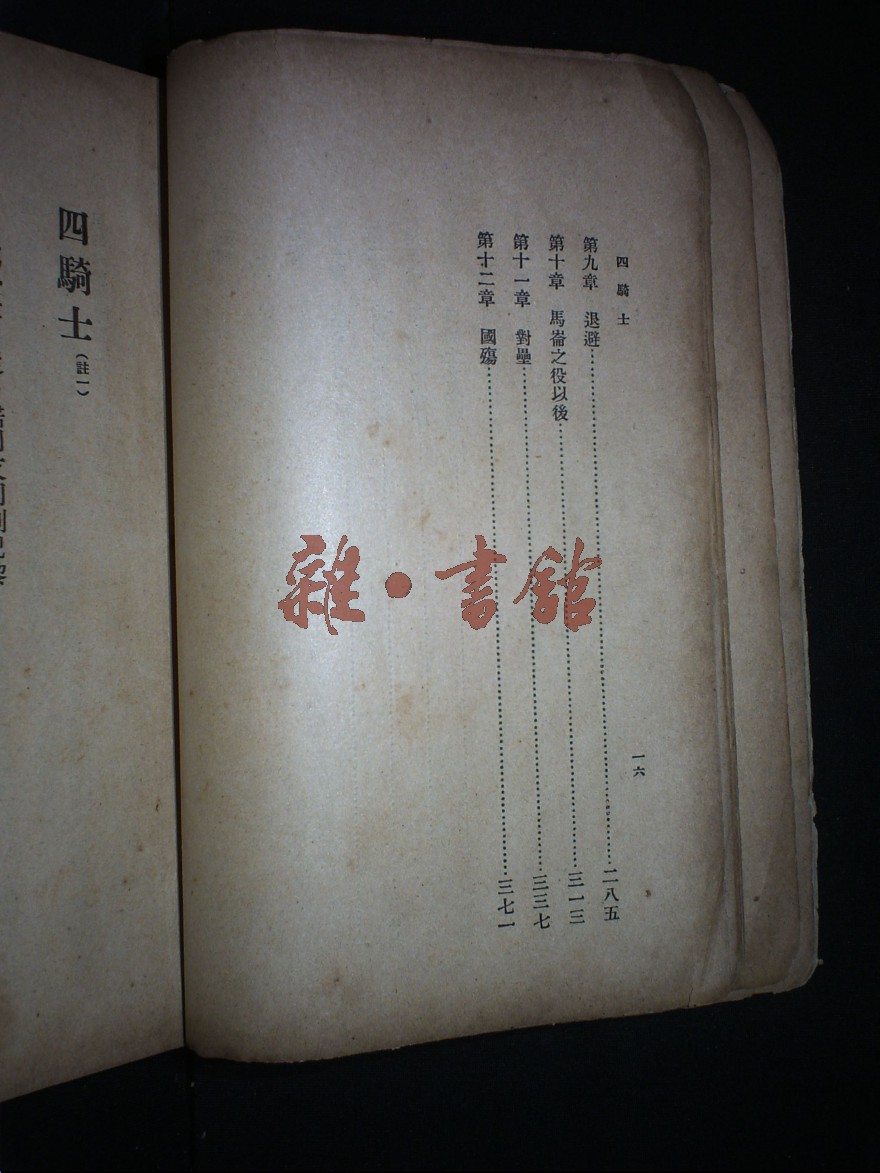 四騎士
一六
第九章 退避……二八五
第十章 馬崙之役以後……三一三
第十一章 對壘……三三七
第十二章 國殤……三七一
四騎士(註一)
雜·書館